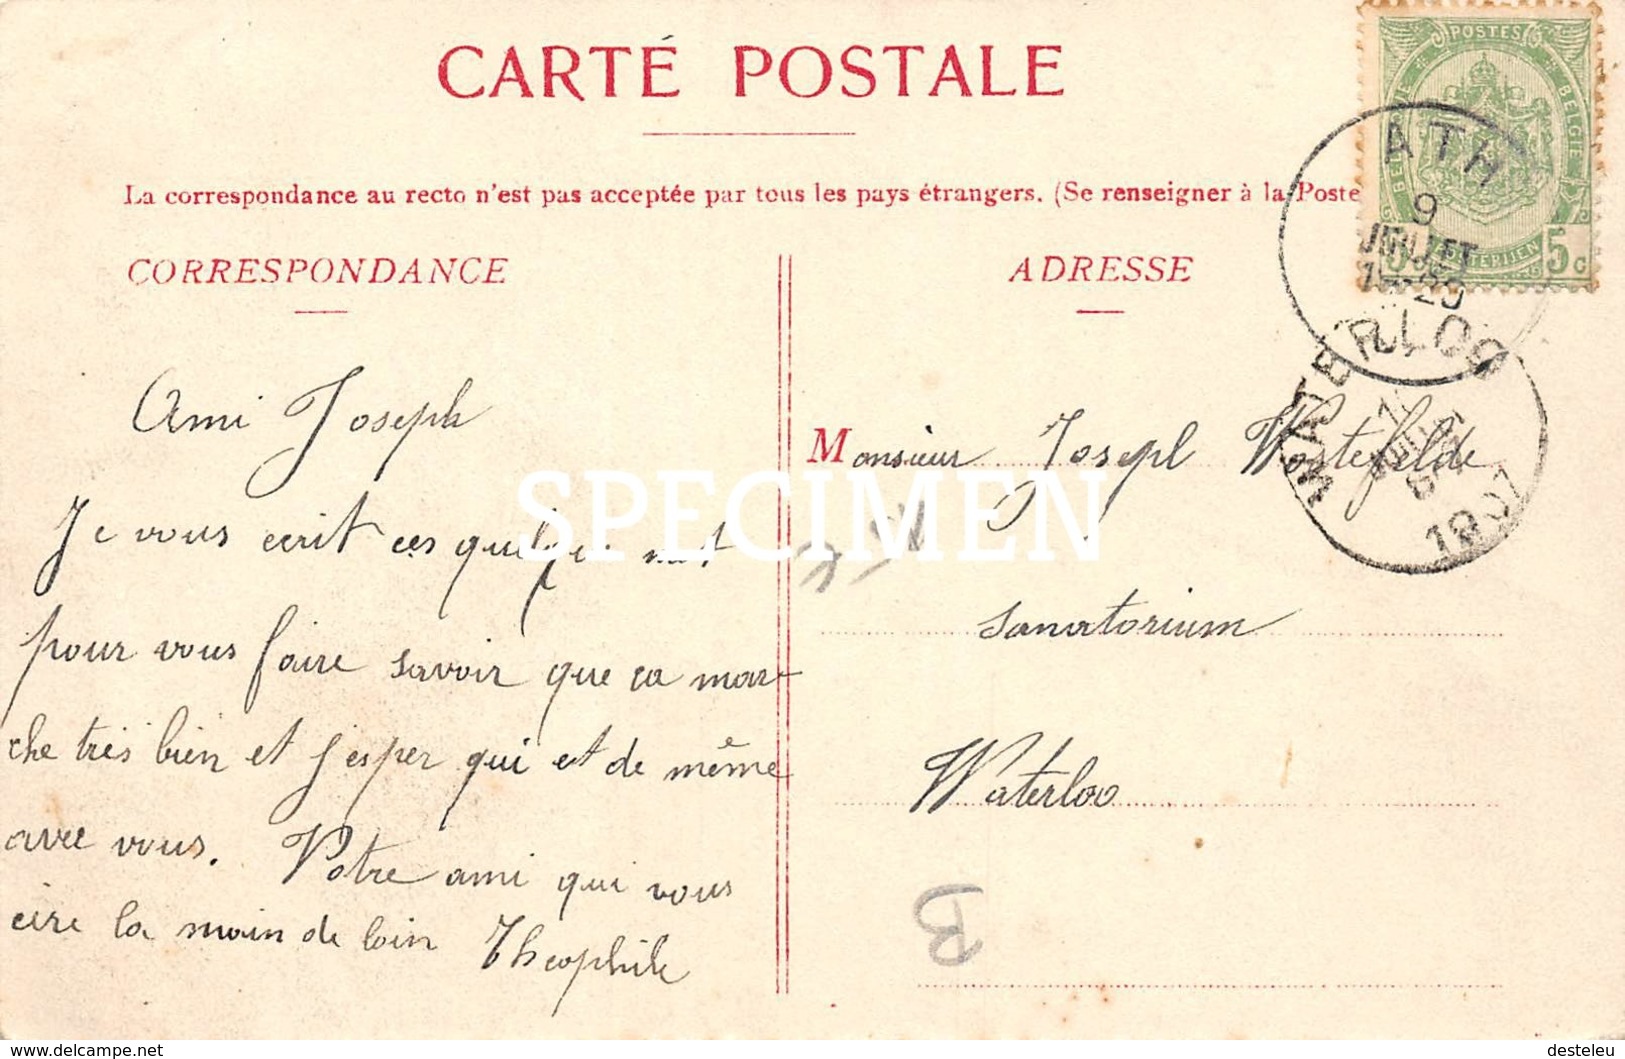 CARTE POSTALE
La correspondance au recto n'est pas acceptée par tous les pays étrangers. (Se renseigner à la Poste
CORRESPONDANCE
Ami Joseph
Je vous ecrit ces quelque mot
pour vous faire savoir que ca mar-
che très bien et j'esper qui et de même
avec vous. Votre ami qui vous
la main de loin Theophile
ADRESSE
Monsieur Joseph
Sanatorium
Waterloo
B
POSTES
BELGIQUE BELGIE
POSTERIJEN
5c
ATH
9
JUILLET
WATERLOO
1907
SPECIMEN
www.delcampe.net
desteleu